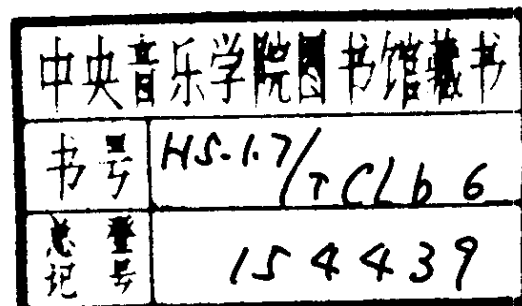 中央音乐学院图书馆藏书
书号 HS-1.7/TCLb6
总登记号 154439